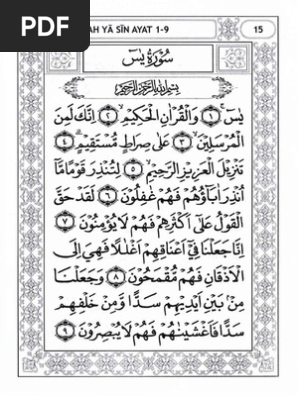 PDF
AH YĀ SĪN AYAT 1-9
15
سُوْرَةُ يٰسٓ
بِسْمِ اللّٰهِ الرَّحْمٰنِ الرَّحِيْمِ
يٰسٓ ۚ ١ وَالْقُرْاٰنِ الْحَكِيْمِ ۙ ٢ اِنَّكَ لَمِنَ
الْمُرْسَلِيْنَ ۙ ٣ عَلٰى صِرَاطٍ مُّسْتَقِيْمٍ ؕ ٤
تَنْزِيْلَ الْعَزِيْزِ الرَّحِيْمِ ۙ ٥ لِتُنْذِرَ قَوْمًا مَّآ
اُنْذِرَ اٰبَآؤُهُمْ فَهُمْ غٰفِلُوْنَ ٦ لَقَدْ حَقَّ
الْقَوْلُ عَلٰٓى اَكْثَرِهِمْ فَهُمْ لَا يُؤْمِنُوْنَ ٧
اِنَّا جَعَلْنَا فِيْٓ اَعْنَاقِهِمْ اَغْلٰلًا فَهِىَ اِلَى
الْاَذْقَانِ فَهُمْ مُّقْمَحُوْنَ ٨ وَجَعَلْنَا
مِنْۢ بَيْنِ اَيْدِيْهِمْ سَدًّا وَّمِنْ خَلْفِهِمْ
سَدًّا فَاَغْشَيْنٰهُمْ فَهُمْ لَا يُبْصِرُوْنَ ٩